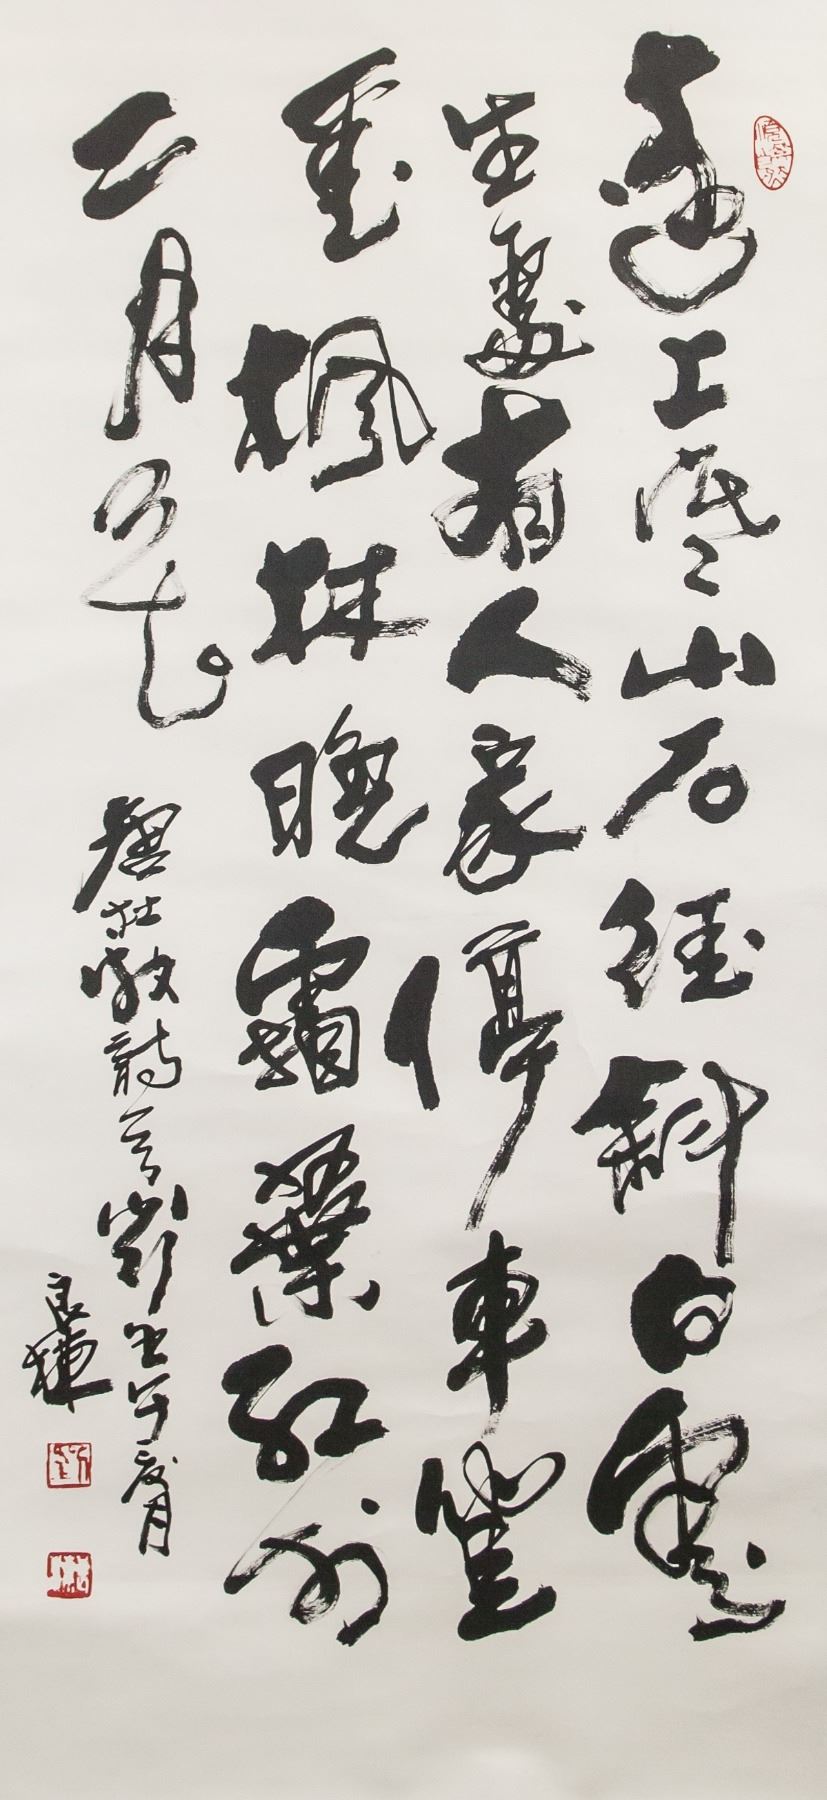 遠上寒山石徑斜白雲
生處有人家停車坐
愛楓林晚霜葉紅於
二月花
唐杜牧詩一首歲壬午夏月
良